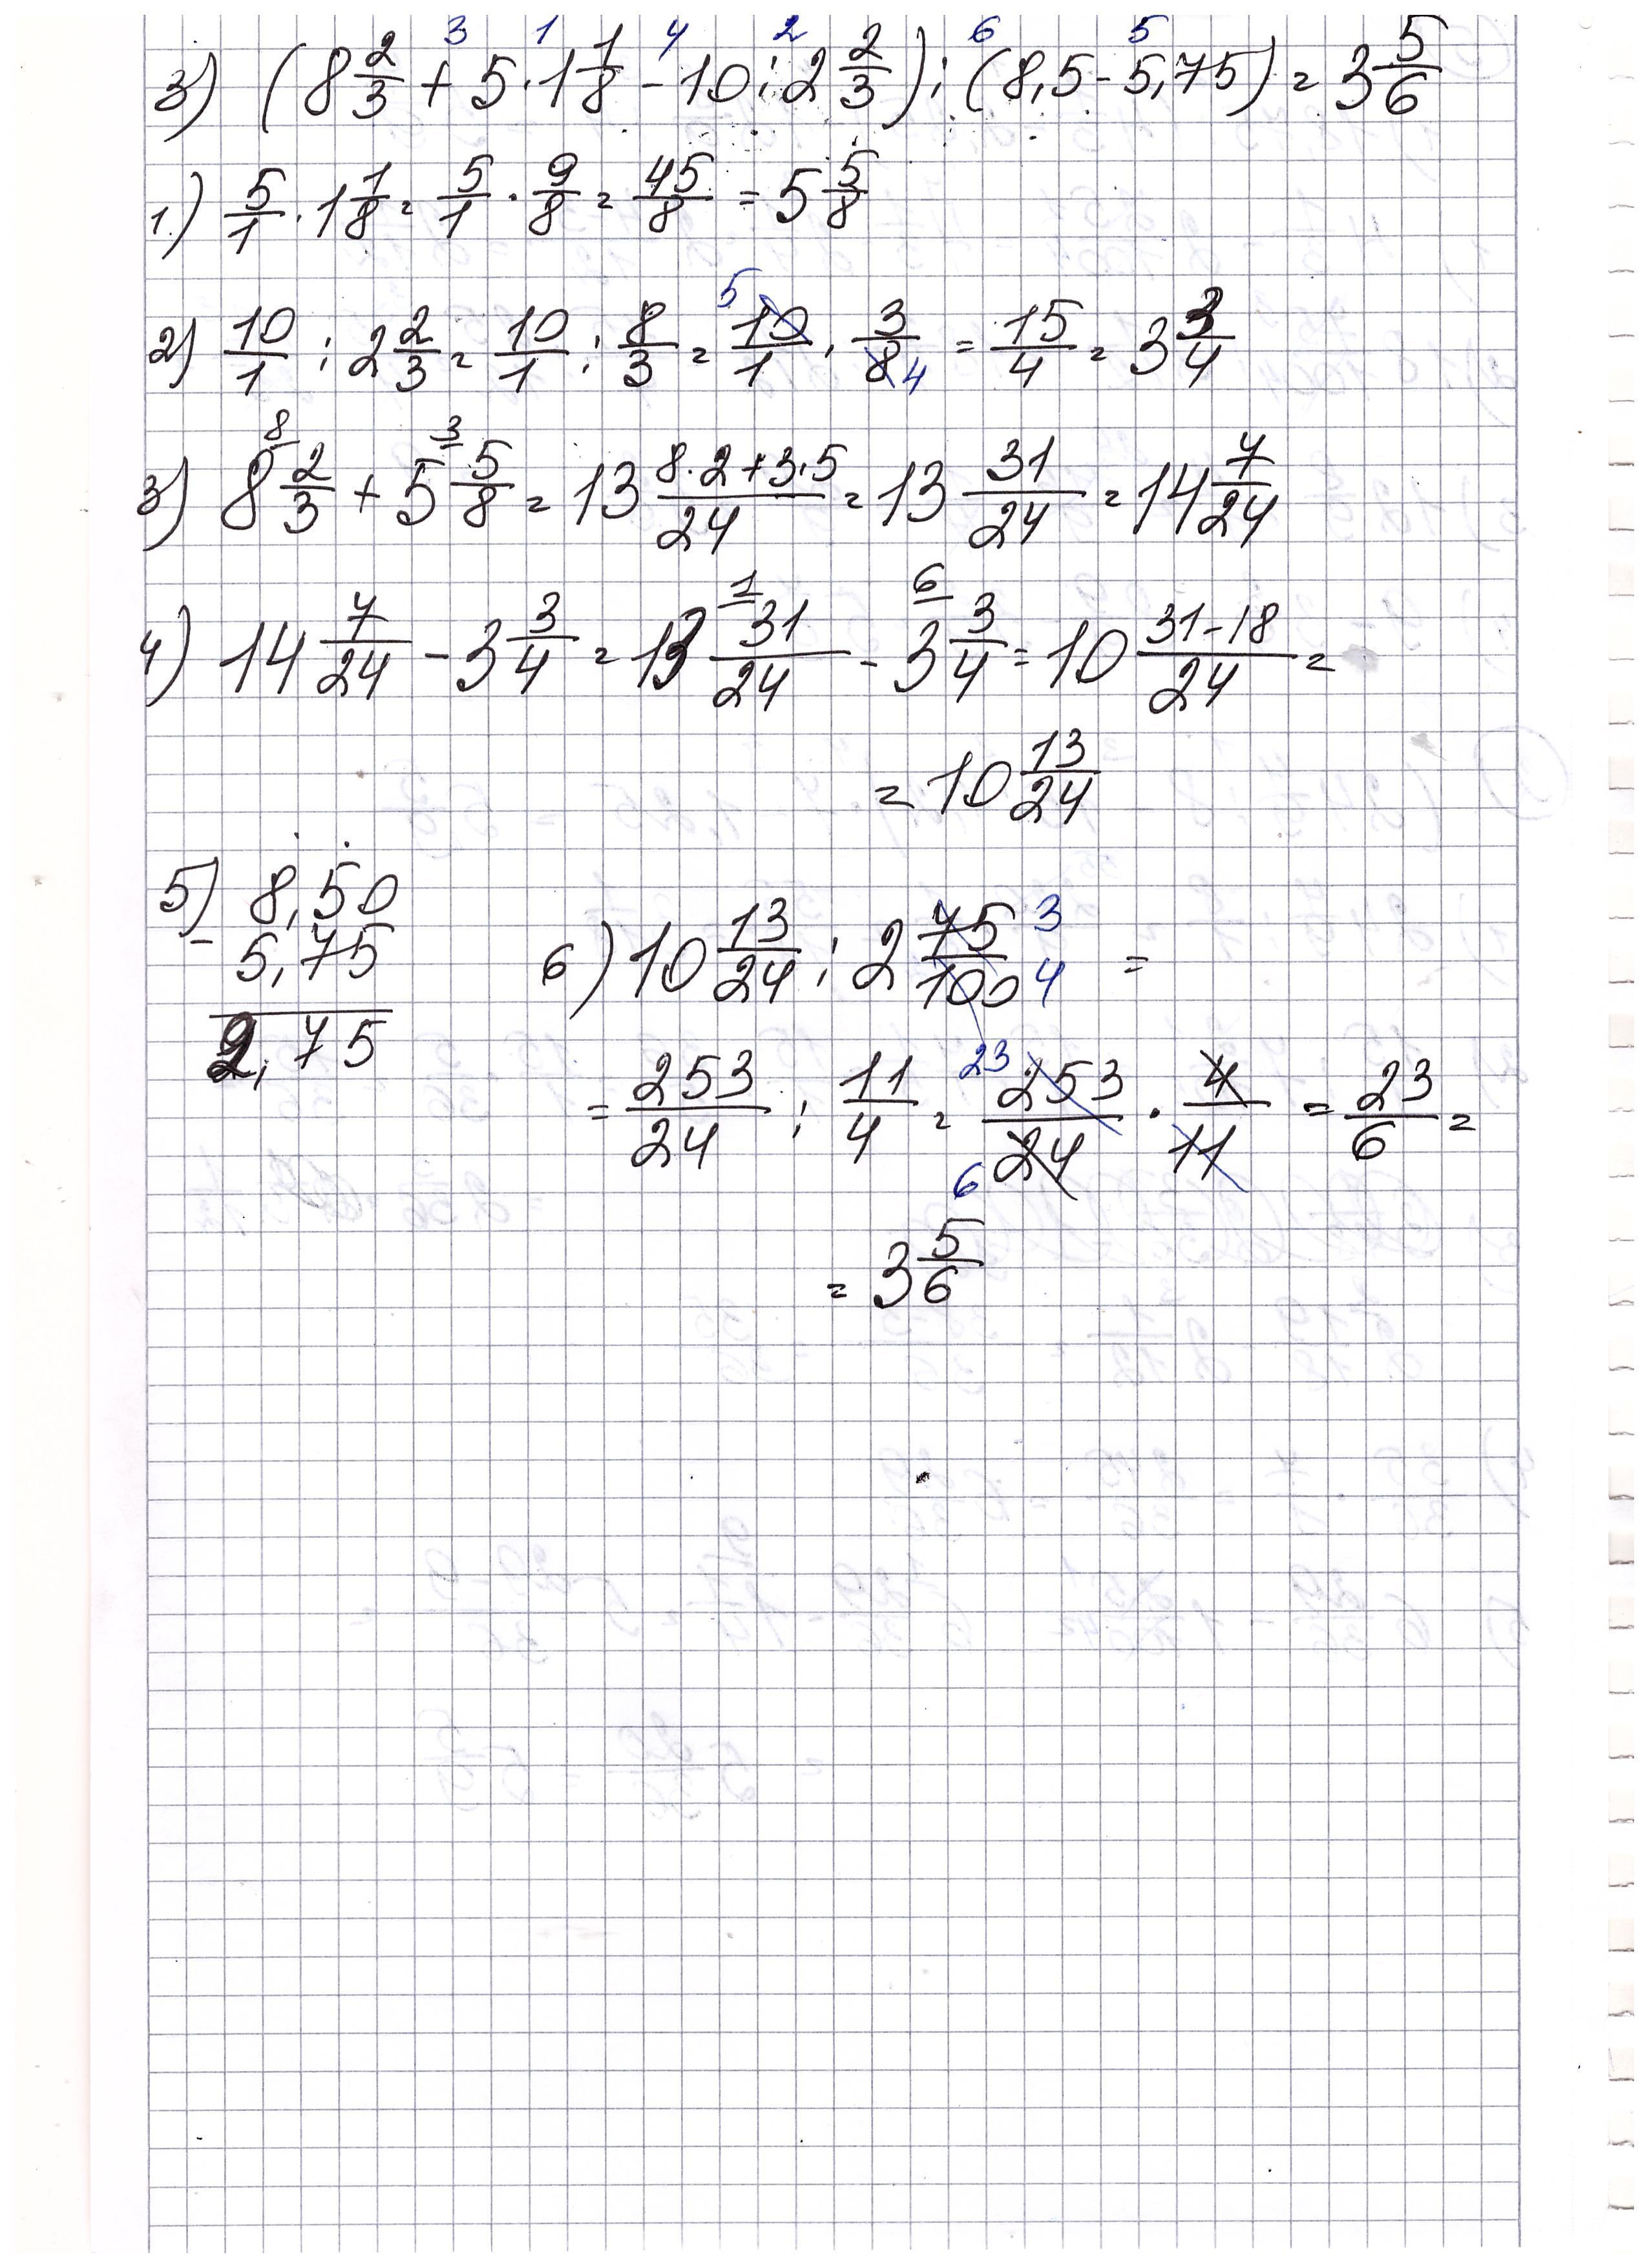 3) (8 2/3 + 5 · 1 1/8 - 10 : 2 2/3) : (8,5 - 5,75) = 3 5/6
3 1 4 2 6 5
1) 5/1 · 1 1/8 = 5/1 · 9/8 = 45/8 = 5 5/8
2) 10/1 : 2 2/3 = 10/1 : 8/3 = 10/1 · 3/8 = 15/4 = 3 3/4
5 4
3) 8 2/3 + 5 5/8 = 13 (8·2+3·5)/24 = 13 31/24 = 14 7/24
8 3
4) 14 7/24 - 3 3/4 = 13 31/24 - 3 3/4 = 10 (31-18)/24 =
1 6
= 10 13/24
5) 8,50
- 5,75
2,75
6) 10 13/24 : 2 75/100 =
3 4
= 253/24 : 11/4 = 253/24 · 4/11 = 23/6 =
23 6
= 3 5/6